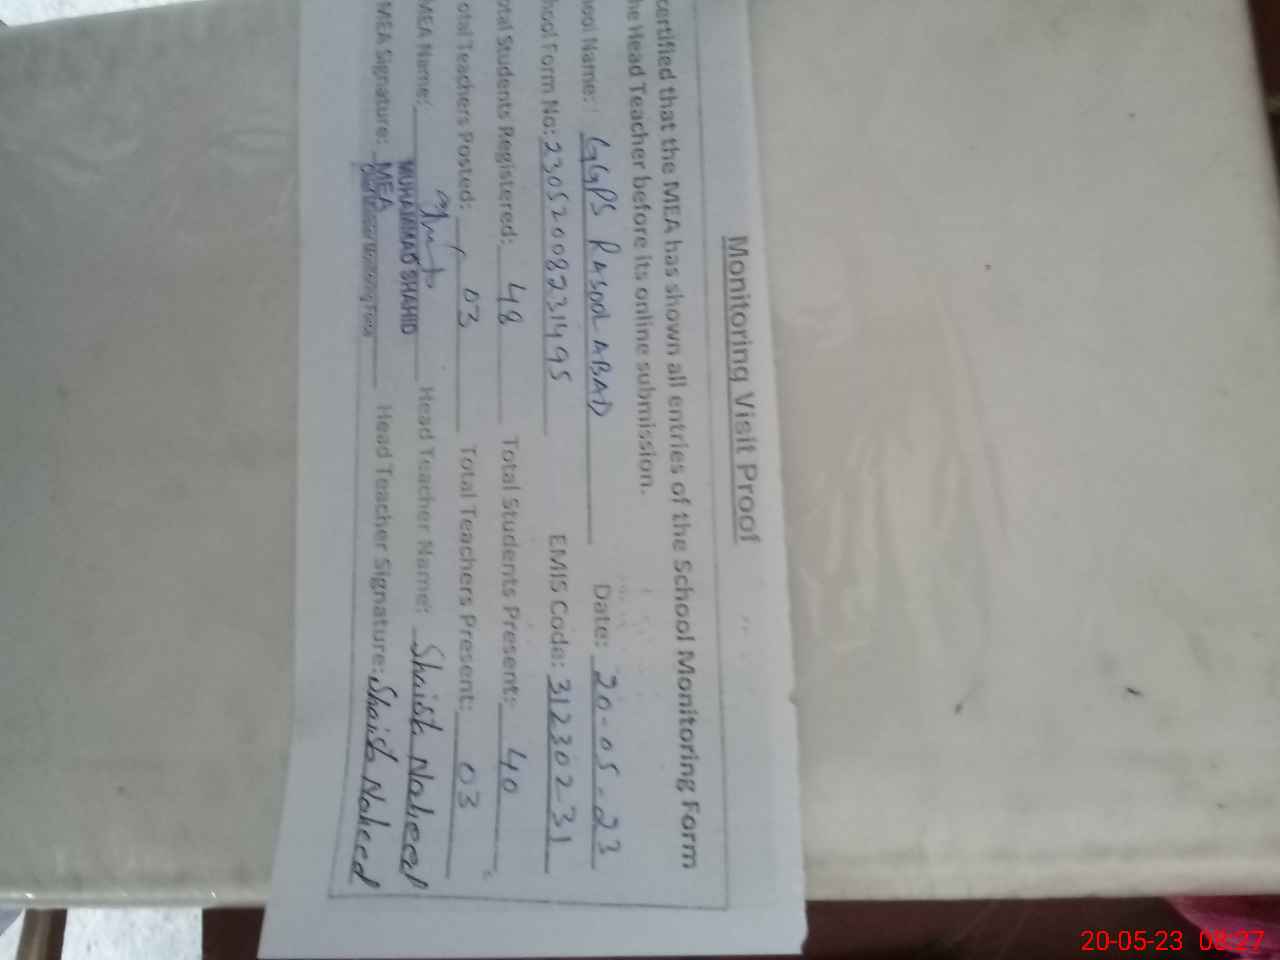 Monitoring Visit Proof
certified that the MEA has shown all entries of the School Monitoring Form
he Head Teacher before its online submission.
ool Name: GGPS RASOOL ABAD Date: 20-05-23
hool Form No: 230520082314 95 EMIS Code: 31230231
otal Students Registered: 48 Total Students Present: 40
otal Teachers Posted: 03 Total Teachers Present: 03
MEA Name: MUHAMMAD SHAHID Head Teacher Name: Shaista Naheed
MEA Signature: MEA Head Teacher Signature: Shaista Naheed
20-05-23 08:27